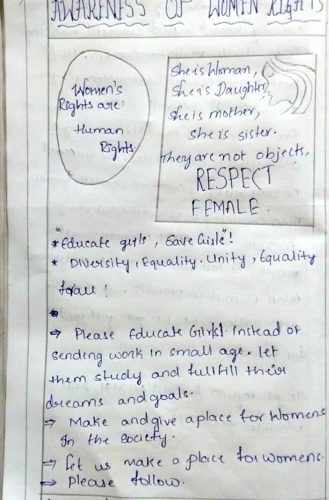 AWARENESS OF WOMEN RIGHTS
Women's
Rights are
Human
Rights
She is Woman,
She is Daughter,
She is mother,
She is sister.
They are not objects,
RESPECT
FEMALE
* Educate girls, Save Girls"!
* Diversity, Equality. Unity, Equality
for all!
⇒ Please Educate Girls! Instead of
Sending work in small age. let
them study and fullfill their
dreams and goals.
⇒ Make and give a place for Womens
In the Society.
⇒ Let us make a place for womens.
⇒ Please follow.